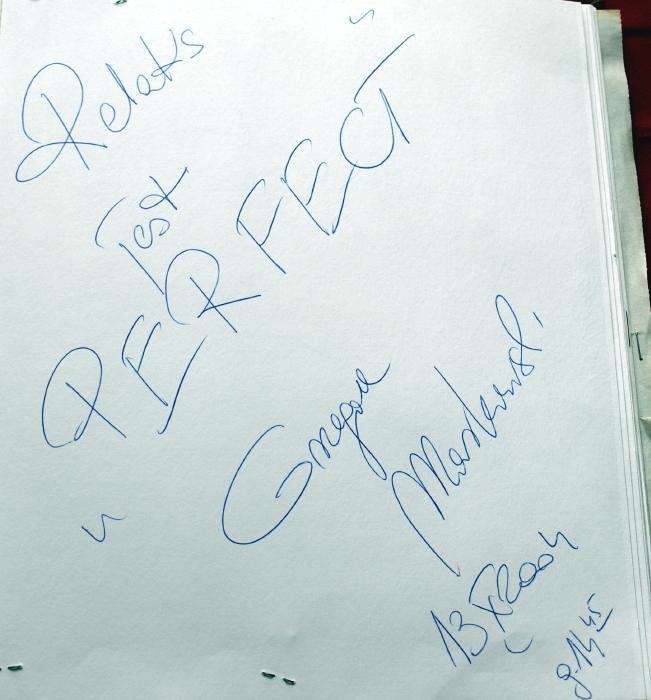 Relaks
jest
"PERFECT"
Grzegorz
Markowski
13 X 2004
g. 14 45